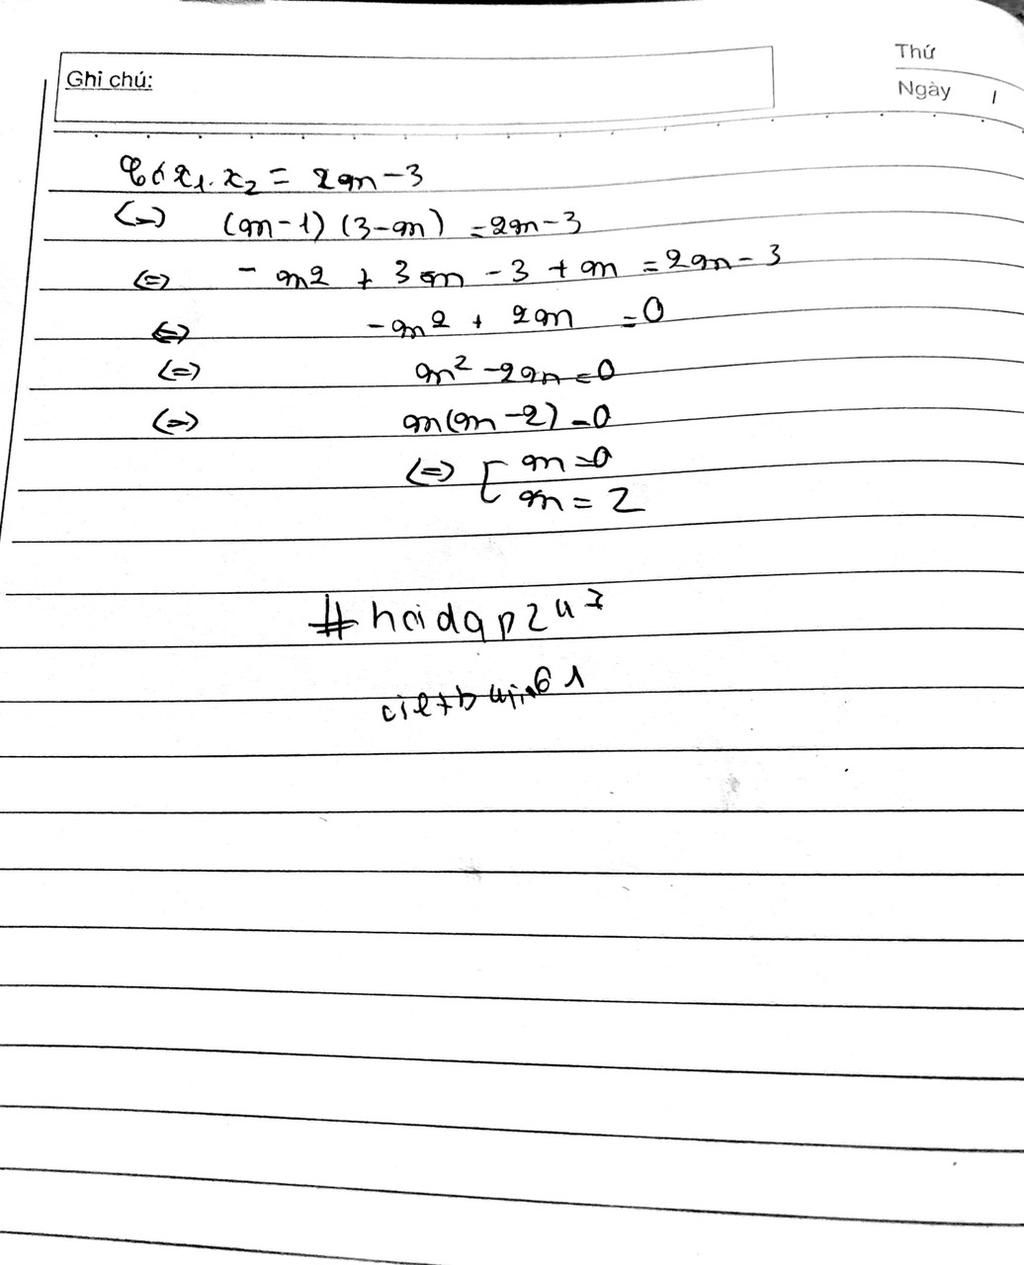 Thứ
Ghi chú:
Ngày /
Có x₁. x₂ = 2m - 3
<=> (m-1) (3-m) = 2m-3
<=> - m2 + 3m - 3 + m = 2m - 3
<=> -m² + 2m = 0
<=> m² - 2m = 0
<=> m(m-2) = 0
<=> [ m = 0
m = 2
# hoidap247